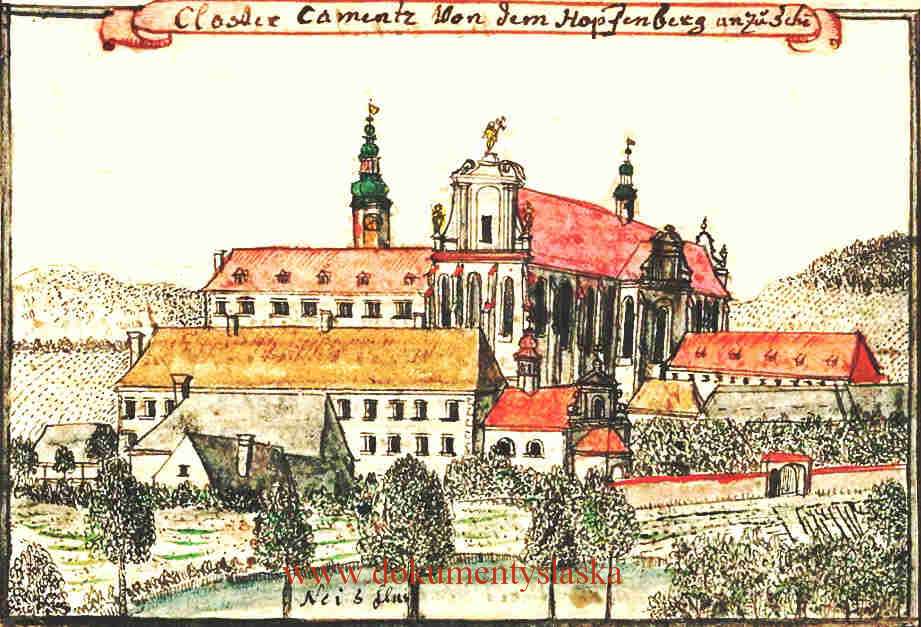 Closter Camentz Von dem Hopfenberg anzusehe
www.dokumentyslaska
Neis flus